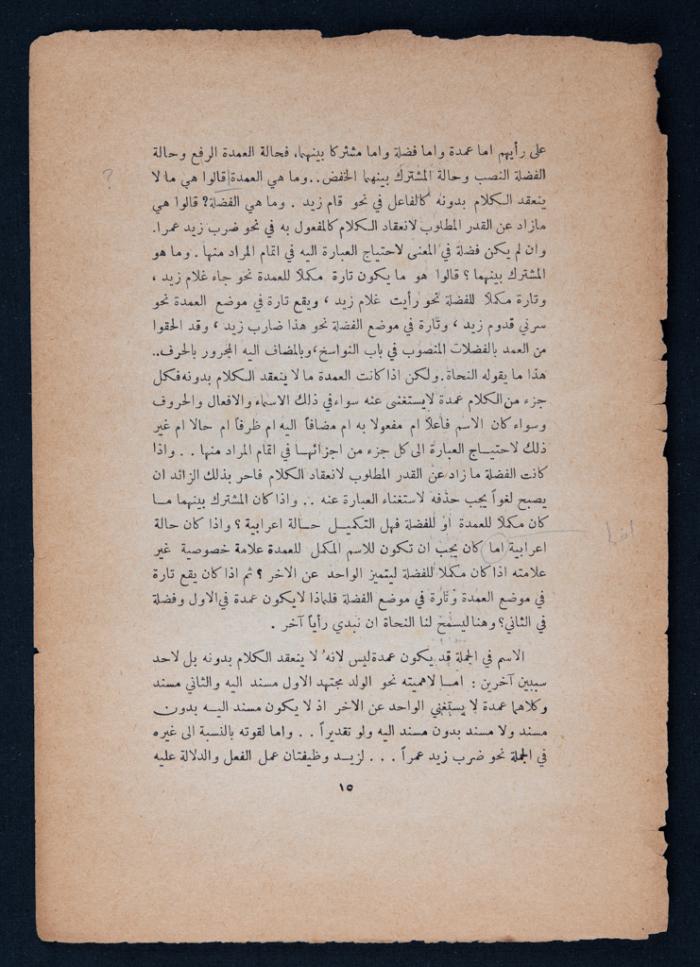 على رأيهم اما عمدة واما فضلة واما مشتركا بينهما، فحالة العمدة الرفع وحالة
الفضلة النصب وحالة المشترك بينهما الخفض.. وما هي العمدة قالوا هي ما لا
ينعقد الكلام بدونه كالفاعل في نحو قام زيد . وما هي الفضلة؟ قالوا هي
مازاد عن القدر المطلوب لانعقاد الكلام كالمفعول به في نحو ضرب زيد عمرا.
وان لم يكن فضلة في المعنى لاحتياج العبارة اليه في اتمام المراد منها . وما هو
المشترك بينهما ؟ قالوا هو ما يكون تارة مكملاً للعمدة نحو جاء غلام زيد ،
وتارة مكملاً للفضلة نحو رأيت غلام زيد ، ويقع تارة في موضع العمدة نحو
سرني قدوم زيد ، وتارة في موضع الفضلة نحو هذا ضارب زيد ، وقد الحقوا
من العمد بالفضلات المنصوب في باب النواسخ، وبالمضاف اليه المجرور بالحرف..
هذا ما يقوله النحاة. ولكن اذا كانت العمدة ما لا ينعقد الكلام بدونه فكل
جزء من الكلام عمدة لا يستغنى عنه سواء في ذلك الاسماء والافعال والحروف
وسواء كان الاسم فاعلاً ام مفعولا به ام مضافاً اليه ام ظرفاً ام حالا ام غير
ذلك لاحتيــاج العبارة الى كل جزء من اجزائهـا في اتمام المراد منها . . واذا
كانت الفضلة ما زاد عن القدر المطلوب لانعقاد الكلام فاحر بذلك الزائد ان
يصبح لغواً يجب حذفه لاستغناء العبارة عنه .. واذا كان المشترك بينهما مـا
كان مكملاً للعمدة او للفضلة فهل التكميـل حـالة اعرابية ؟ واذا كان حالة
اعرابية اما كان يجب ان تكون للاسم المكمل للعمدة علامة خصوصية غير
علامته اذا كان مكملا للفضلة ليتميز الواحد عن الاخر ؟ ثم اذا كان يقع تارة
في موضع العمدة وتارة في موضع الفضلة فلماذا لا يكون عمدة في الاول وفضلة
في الثاني؟ وهنا ليسمح لنا النحاة ان نبدي رأياً آخر .
الاسم في الجملة قد يكون عمدة ليس لانهُ لا ينعقد الكلام بدونه بل لاحد
سببين آخرين : امـا لاهميته نحو الولد مجتهد الاول مسند اليه والثاني مسند
وكلاهما عمدة لا يستغني الواحد عن الاخر اذ لا يكون مسند اليـه بدون
مسند ولا مسند بدون مسند اليه ولو تقديراً . . واما لقوته بالنسبة الى غيره
في الجملة نحو ضرب زيد عمراً . . . لزيـد وظيفتان عمل الفعل والدلالة عليه
١٥
?